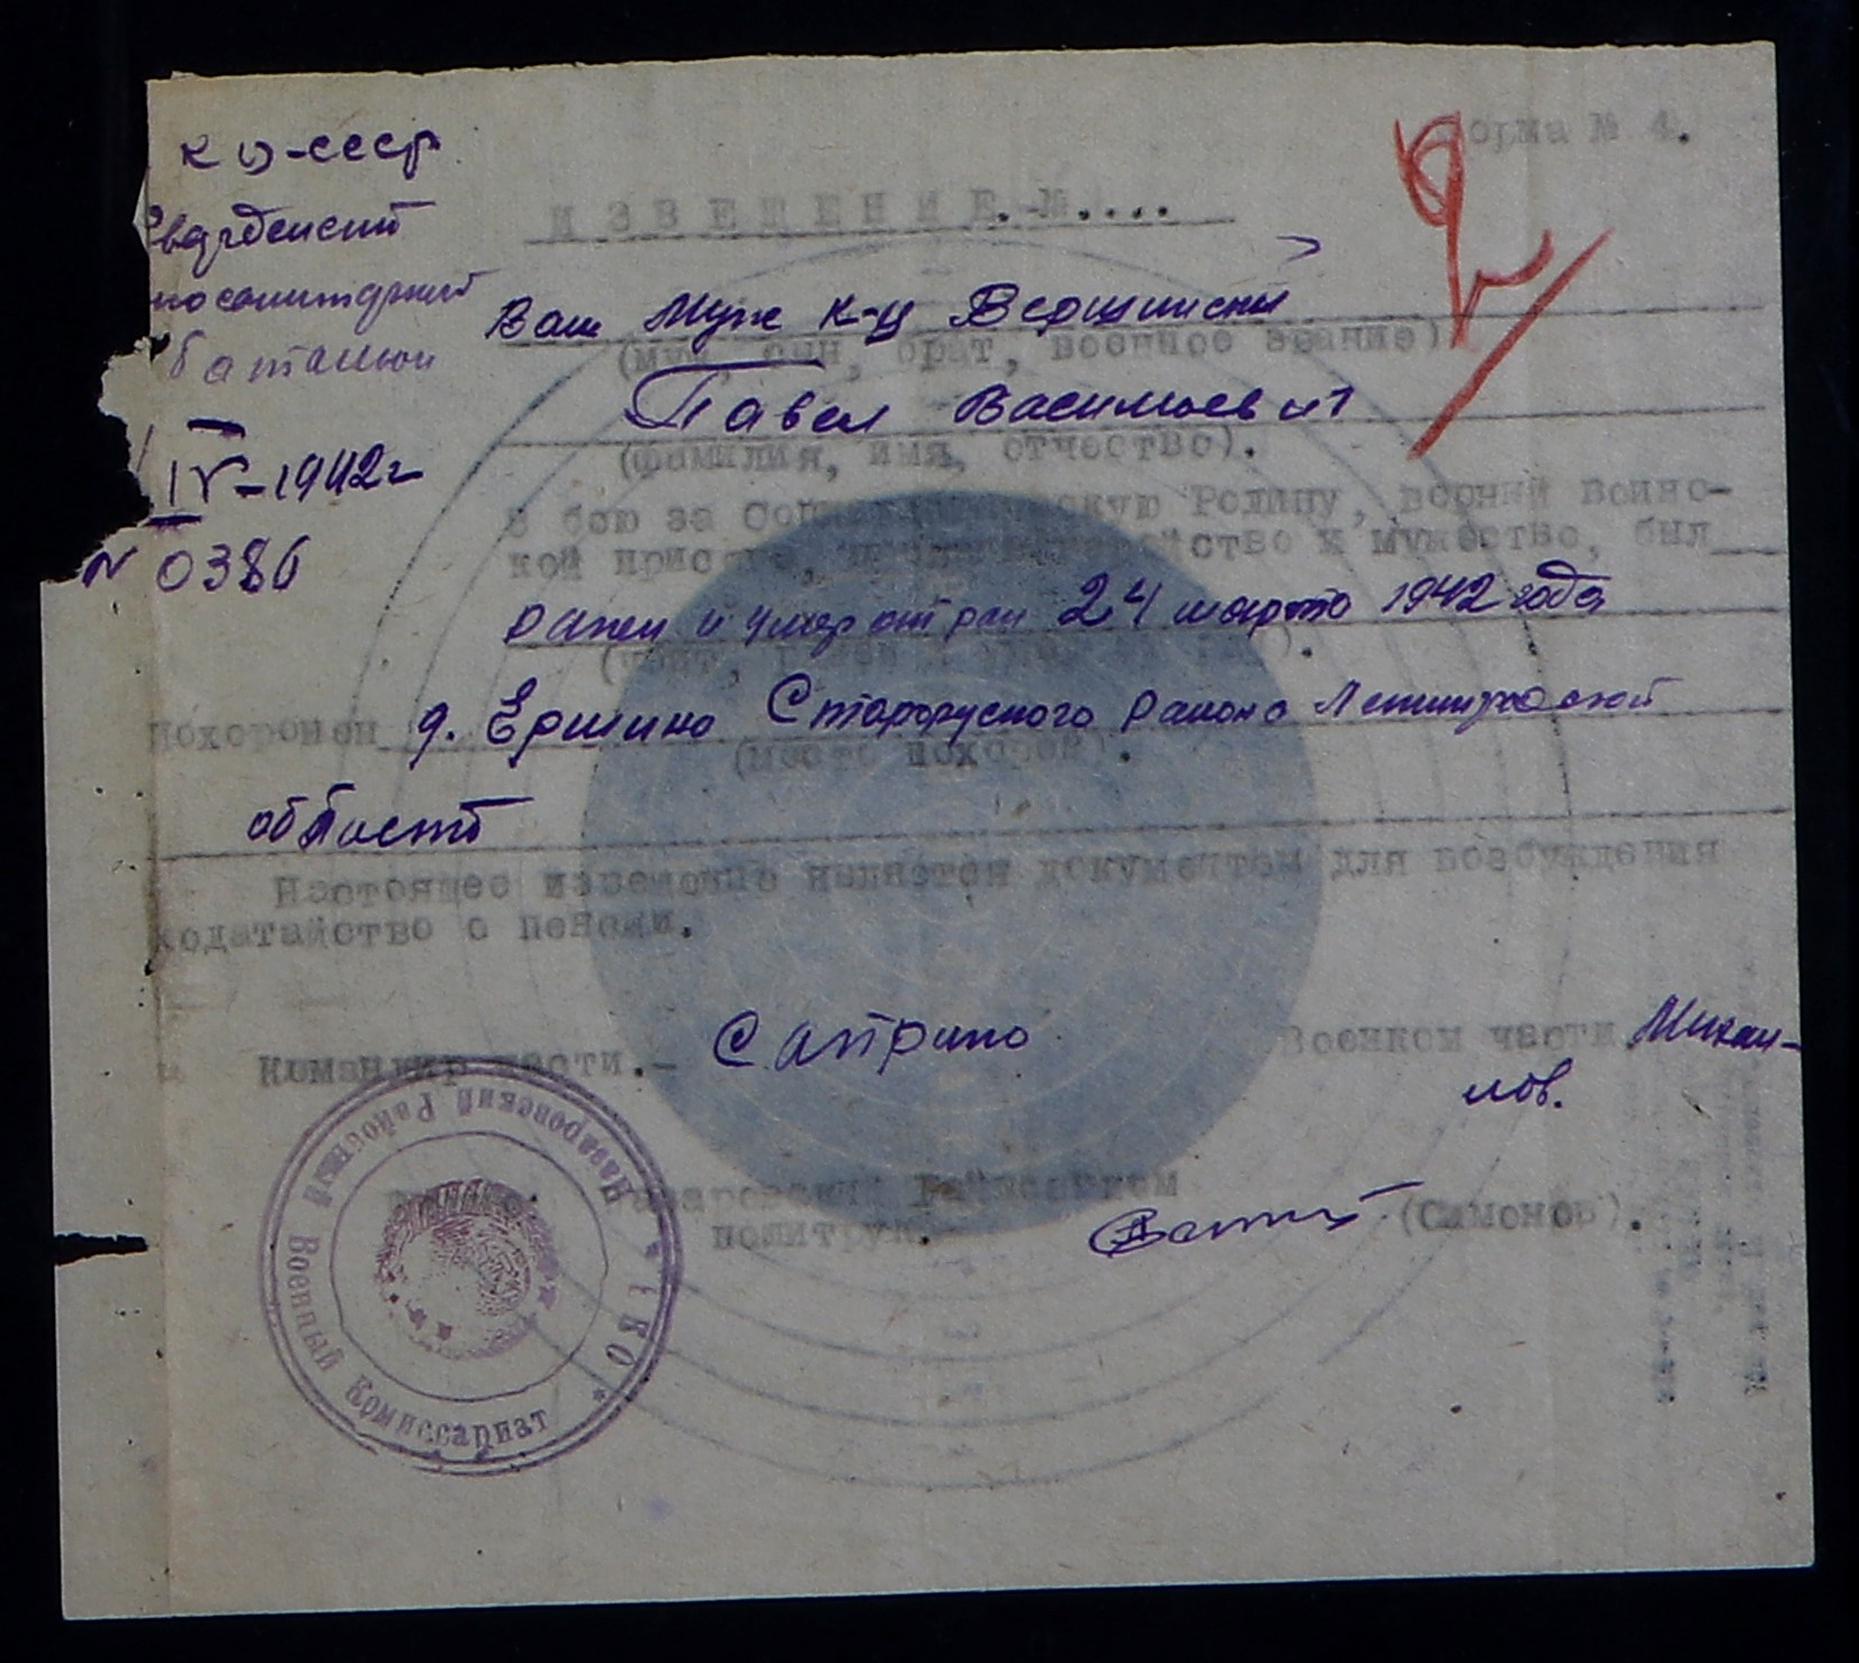 Форма № 4.
КО-СССР
вардейский
носанитарный
батальон
IV-1942г
N 0386
ИЗВЕЩЕНИЕ.№....
Ваш Муж к-ц Вершинский
(муж, сын, брат, военное звание)
Павел Васильевич
(фамилия, имя, отчество).
В бою за Социалистическую Родину, верный воинс-
кой присяге, геройство и мужество, был
ранен и умер от ран 24 марта 1942 года
(убит, ранен и умер от ран).
похоронен д. Ершино Старорусского района Ленинградской
(место похорон).
область
Настоящее извещение является документом для возбуждения
ходатайство о пенсии.
Командир части.- Саприко
Военком части. Михай-
лов.
Назаровский Райвоенком
политрук.- (Симонов).
Назаровский Районный Военный Комиссариат
НКО